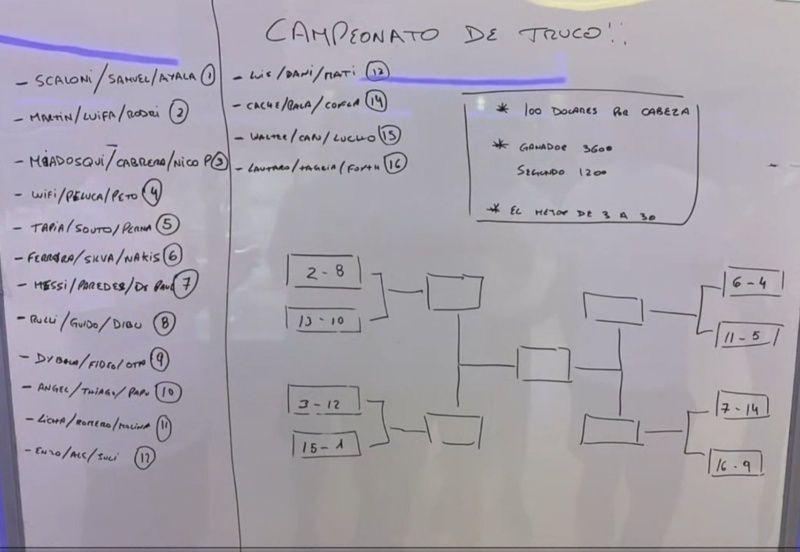 CAMPEONATO DE TRUCO!!
- SCALONI/SAMUEL/AYALA 1
- MARTIN/LUIFA/RODRI 2
- MIADOSQUI/CABRERA/NICO P 3
- WIFI/PELUCA/PETO 4
- TAPIA/SOUTO/PERNA 5
- FERREIRA/SILVA/NAKIS 6
- MESSI/PAREDES/DE PAUL 7
- RULLI/GUIDO/DIBU 8
- DYBALA/FIDEO/OTA 9
- ANGEL/THIAGO/PAPU 10
- LICHA/ROMERO/MOLINA 11
- ENZO/ALE/JULI 12
- LUIS/DANI/MATI 13
- CACHE/BALA/CONGA 14
- WALTER/CAN/LUCHO 15
- LAUTARO/TAGLIA/FOYTH 16
* 100 DOLARES POR CABEZA
* GANADOR 3600
SEGUNDO 1200
* EL MEJOR DE 3 A 30
2-8
13-10
3-12
15-1
6-4
11-5
7-14
16-9